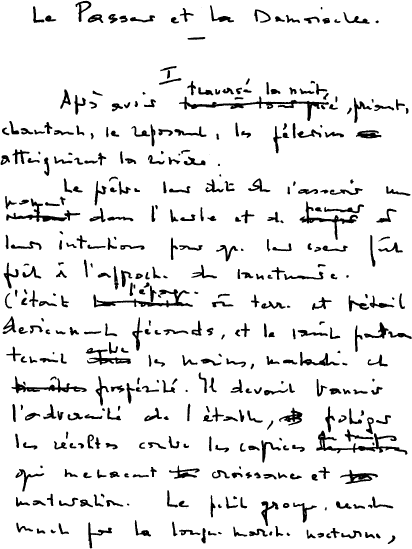 Le Passeur et la Damoiselle.
I
traversé la nuit,
Après avoir tour à tour prié, priant,
chantant, se reposant, les pélerins
atteignirent la rivière.
Le prêtre leur dit de s'asseoir un
moment dans l'herbe et de penser à
leurs intentions pour que leur coeur fût
prêt à l'approche du sanctuaire.
C'était l'époque où terre et bétail
deviennent féconds, et le saint patron
tenait entre les mains, maladie et
prospérité. Il devait bannir
l'adversité de l'étable, protéger
les récoltes contre les caprices du temps
qui menacent croissance et
maturation. Le petit groupe, rendu
muet par la longue marche nocturne,